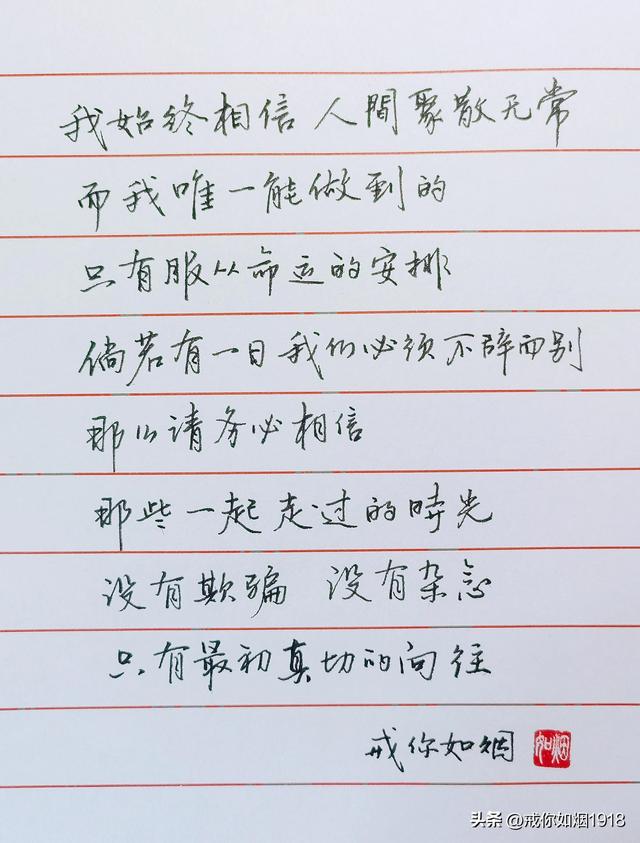 我始终相信 人間聚散无常
而我唯一能做到的
只有服从命运的安排
倘若有一日我们必须不辞而别
那么请务必相信
那些一起走过的時光
没有欺骗 没有杂念
只有最初真切的向往
戒你如烟
如烟
头条 @戒你如烟1918